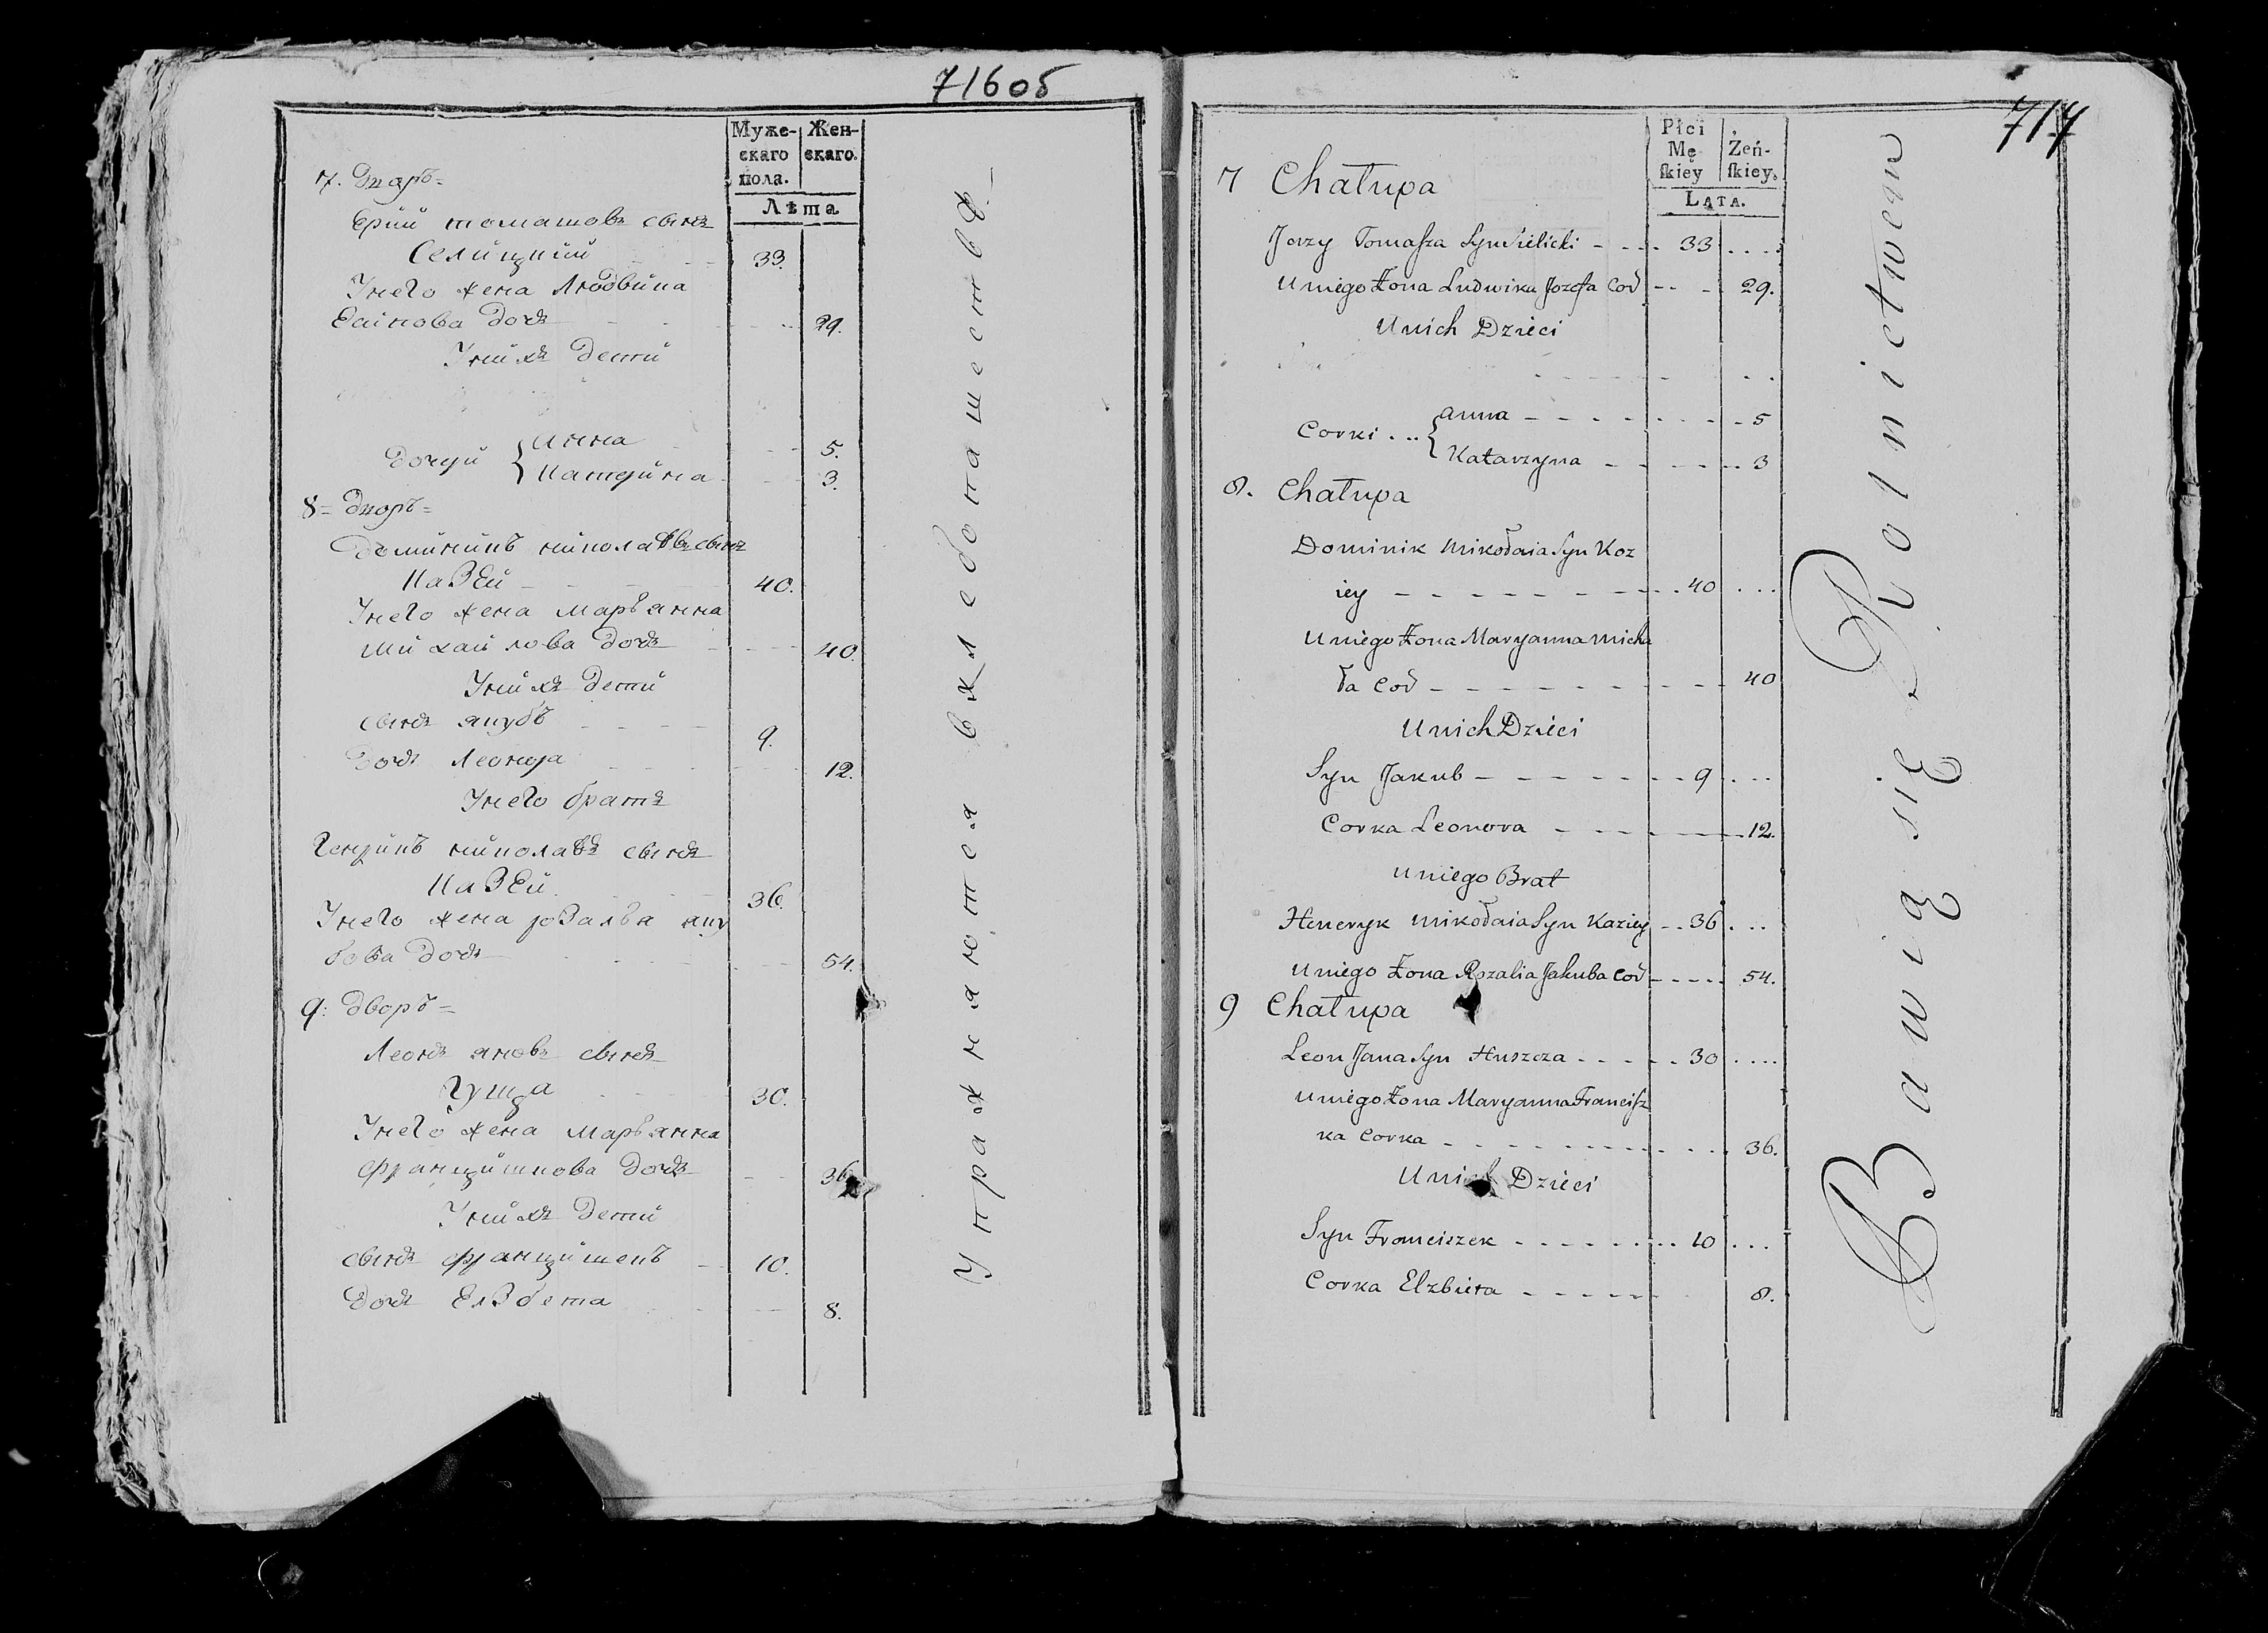 71605
Муже-
скаго
пола.
Жен-
скаго.
Лѣта
7. Дворъ
Ерий томашовъ сынъ
Селицкий 33.
Унего жена Людвика
Еsiпова дочь 29.
Унихъ дети
дочери
Анна 5.
Катерина 3.
8 = Дворъ =
Доминикъ миколаевъ сынъ
КаЗЕй 40.
Унего жена Марьянна
Михайлова дочь 40.
Унихъ дети
сынъ якубъ 9.
дочь Леонора 12.
Унего братъ
Генрикъ миколаевъ сынъ
КаЗЕй 36.
Унего жена розалья яку
бова дочь 54.
9: Дворъ =
Леонъ яновъ сынъ
Гуща 30.
Унего жена Марьянна
францишкова дочь 36
Унихъ дети
сынъ францишекъ 10.
дочь Елзбета 8.
Упражняются вхлебопашествѣ
717
Płci
Mę
skiey
Żeń-
skiey.
Lata.
7 Chałupa
Jerzy Tomasza Syn Sielicki 33
U niego Żona Ludwika Jozefa Cor 29.
U nich Dzieci
Corki
Anna 5
Katarzyna 3
8. Chałupa
Dominik Mikołaia Syn Koz
iey 40
U niego Żona Maryanna Micha
ła Cor 40
U nich Dzieci
Syn Jakub 9
Corka Leonora 12.
U niego Brat
Heneryk Mikołaia Syn Kaziey 36
U niego Żona Rozalia Jakuba Cor 54.
9 Chałupa
Leon Jana Syn Huszcza 30
U niego Żona Maryanna Francisz
ka Corka 36.
U nich Dzieci
Syn Franciszek 10
Corka Elzbieta 8.
Bawią się Rolnictwem